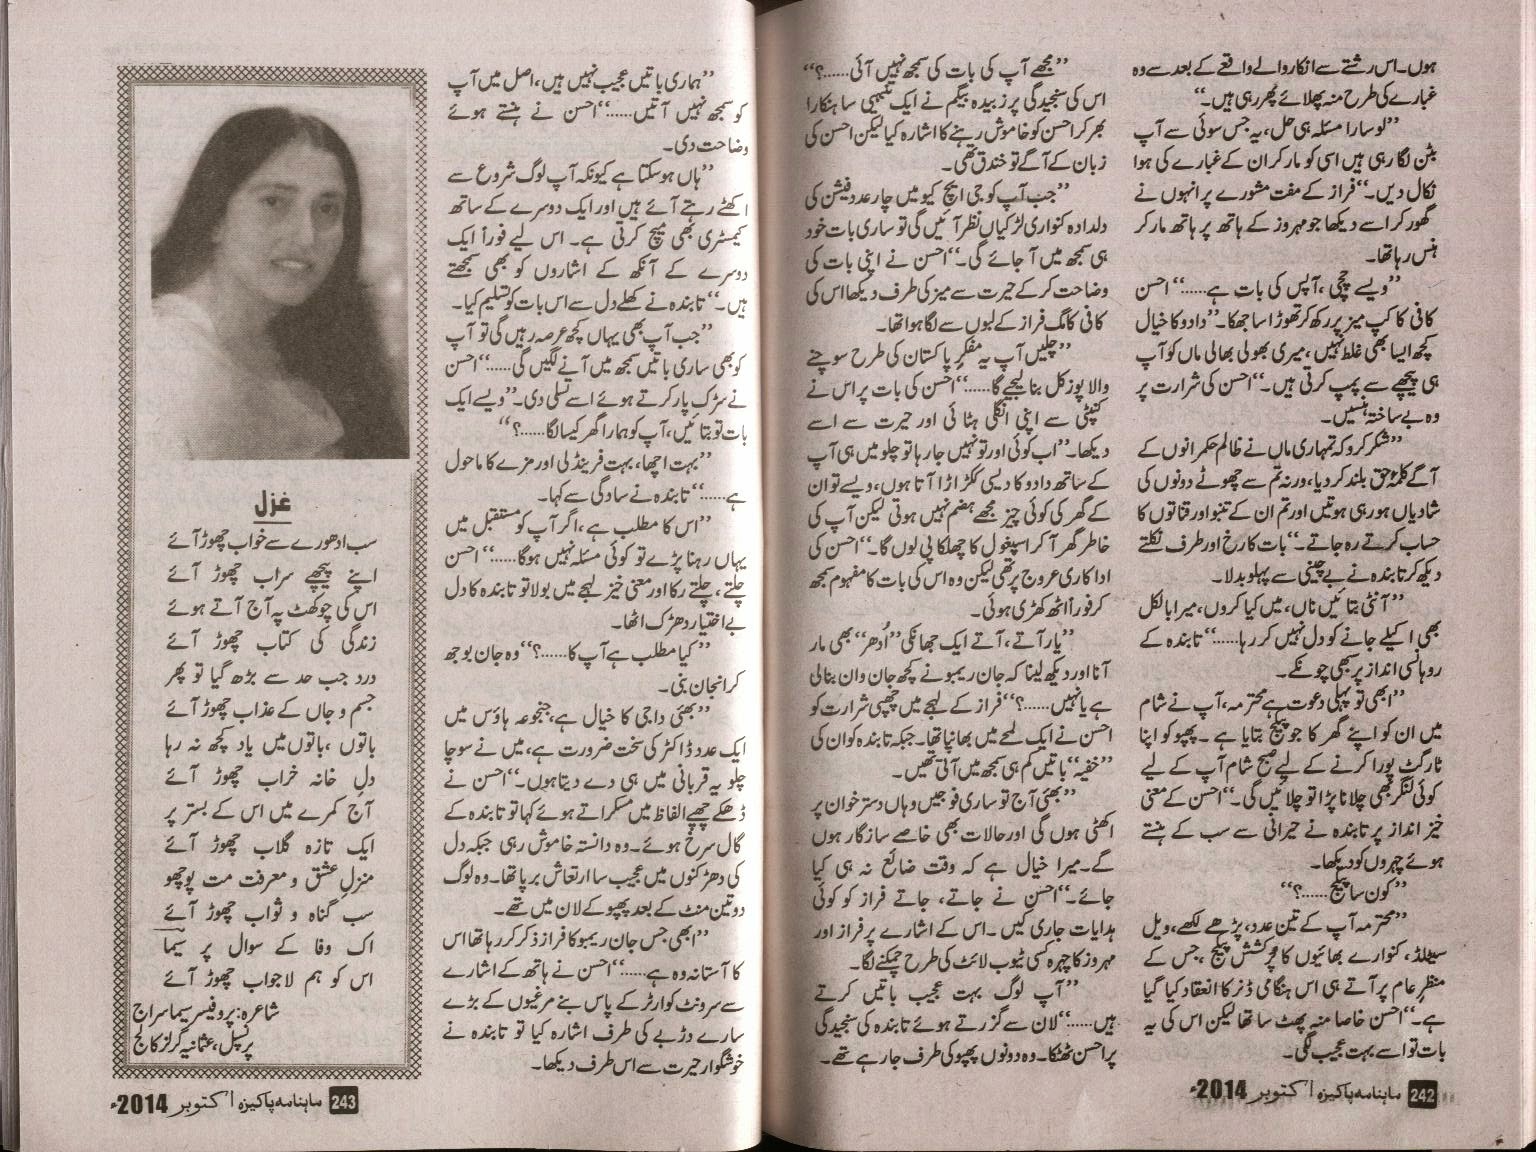 ہوں۔ اس رشتے سے انکار والے واقعے کے بعد سے وہ
غبارے کی طرح منہ پھلائے پھر رہی ہیں۔“
”لو سارا مسئلہ ہی حل، یہ جس سوئی سے آپ
بٹن لگا رہی ہیں اسی کو مار کر ان کے غبارے کی ہوا
نکال دیں۔“ فراز کے مفت مشورے پر انہوں نے
گھور کر اسے دیکھا جو مہروز کے ہاتھ پر ہاتھ مار کر
ہنس رہا تھا۔
”ویسے چچی، آپس کی بات ہے......“ احسن
کافی کا کپ میز پر رکھ کر تھوڑا سا جھکا۔ ”دادو کا خیال
کچھ ایسا بھی غلط نہیں، میری بھولی بھالی ماں کو آپ
ہی پیچھے سے پمپ کرتی ہیں۔“ احسن کی شرارت پر
وہ بے ساختہ ہنسیں۔
”شکر کرو کہ تمہاری ماں نے ظالم حکمرانوں کے
آگے کلمۂ حق بلند کر دیا، ورنہ تم سے چھوٹے دونوں کی
شادیاں ہو رہی ہوتیں اور تم ان کے تنبو اور قناتوں کا
حساب کرتے رہ جاتے۔“ بات کا رخ اور طرف نکلتے
دیکھ کر تابندہ نے بے چینی سے پہلو بدلا۔
”آنٹی بتائیں ناں، میں کیا کروں، میرا بالکل
بھی اکیلے جانے کو دل نہیں کر رہا......“ تابندہ کے
روہانسی انداز پر بھی چونکے۔
”ابھی تو پہلی دعوت ہے محترمہ، آپ نے شام
میں ان کو اپنے گھر کا جو پیکج بتایا ہے۔ پھپو کو اپنا
ٹارگٹ پورا کرنے کے لیے صبح شام آپ کے لیے
کوئی لنگر بھی چلانا پڑا تو چلائیں گی۔“ احسن کے معنی
خیز انداز پر تابندہ نے حیرانی سے سب کے ہنستے
ہوئے چہروں کو دیکھا۔
”کون سا پیکج......؟“
”محترمہ آپ کے تین عدد، پڑھے لکھے، ویل
سیٹلڈ، کنوارے بھائیوں کا پُرکشش پیکج، جس کے
منظرِ عام پر آتے ہی اس ہنگامی ڈنر کا انعقاد کیا گیا
ہے۔“ احسن خاصا منہ پھٹ سا تھا لیکن اس کی یہ
بات تو اسے بہت عجیب لگی۔
242 ماہنامہ پاکیزہ اکتوبر 2014ء
”مجھے آپ کی بات کی سمجھ نہیں آئی......؟“
اس کی سنجیدگی پر زبیدہ بیگم نے ایک تنبیہی سا ہنکارا
بھر کر احسن کو خاموش رہنے کا اشارہ کیا لیکن احسن کی
زبان کے آگے تو خندق تھی۔
”جب آپ کو جی ایچ کیو میں چار عدد فیشن کی
دلدادہ کنواری لڑکیاں نظر آئیں گی تو ساری بات خود
ہی سمجھ میں آ جائے گی۔“ احسن نے اپنی بات کی
وضاحت کر کے حیرت سے میز کی طرف دیکھا اس کی
کافی کا مگ فراز کے لبوں سے لگا ہوا تھا۔
”چلیں آپ یہ مفکرِ پاکستان کی طرح سوچنے
والا پوز کل بنا لیجیے گا......“ احسن کی بات پر اس نے
کنپٹی سے اپنی انگلی ہٹائی اور حیرت سے اسے
دیکھا۔ ”اب کوئی اور تو نہیں جا رہا تو چلو میں ہی آپ
کے ساتھ دادو کا دیسی ککڑ اڑا آتا ہوں، ویسے تو ان
کے گھر کی کوئی چیز مجھے ہضم نہیں ہوتی لیکن آپ کی
خاطر گھر آ کر اسپغول کا چھلکا پی لوں گا۔“ احسن کی
اداکاری عروج پر تھی لیکن وہ اس کی بات کا مفہوم سمجھ
کر فوراً اٹھ کھڑی ہوئی۔
”یار آتے، آتے ایک جھانکی ”اُدھر“ بھی مار
آنا اور دیکھ لینا کہ جان ریمبو نے کچھ جان وان بنا لی
ہے یا نہیں......؟“ فراز کے لہجے میں چھپی شرارت کو
احسن نے ایک لمحے میں بھانپا تھا۔ جبکہ تابندہ کو ان کی
”خفیہ“ باتیں کم ہی سمجھ میں آتی تھیں۔
”بھئی آج تو ساری فوجیں وہاں دسترخوان پر
اکٹھی ہوں گی اور حالات بھی خاصے سازگار ہوں
گے۔ میرا خیال ہے کہ وقت ضائع نہ ہی کیا
جائے۔“ احسن نے جاتے، جاتے فراز کو کوئی
ہدایات جاری کیں۔ اس کے اشارے پر فراز اور
مہروز کا چہرہ کسی ٹیوب لائٹ کی طرح چمکنے لگا۔
”آپ لوگ بہت عجیب باتیں کرتے
ہیں......“ لان سے گزرتے ہوئے تابندہ کی سنجیدگی
پر احسن ٹھٹکا۔ وہ دونوں پھپو کی طرف جا رہے تھے۔
”ہماری باتیں عجیب نہیں ہیں، اصل میں آپ
کو سمجھ نہیں آتیں......“ احسن نے ہنستے ہوئے
وضاحت دی۔
”ہاں ہو سکتا ہے کیونکہ آپ لوگ شروع سے
اکٹھے رہتے آئے ہیں اور ایک دوسرے کے ساتھ
کیمسٹری بھی میچ کرتی ہے۔ اس لیے فوراً ایک
دوسرے کے آنکھ کے اشاروں کو بھی سمجھتے
ہیں۔“ تابندہ نے کھلے دل سے اس بات کو تسلیم کیا۔
”جب آپ بھی یہاں کچھ عرصہ رہیں گی تو آپ
کو بھی ساری باتیں سمجھ میں آنے لگیں گی......“ احسن
نے سڑک پار کرتے ہوئے اسے تسلی دی۔ ”ویسے ایک
بات تو بتائیں، آپ کو ہمارا گھر کیسا لگا......؟“
”بہت اچھا، بہت فرینڈلی اور مزے کا ماحول
ہے......“ تابندہ نے سادگی سے کہا۔
”اس کا مطلب ہے، اگر آپ کو مستقبل میں
یہاں رہنا پڑے تو کوئی مسئلہ نہیں ہوگا......“ احسن
چلتے، چلتے رکا اور معنی خیز لہجے میں بولا تو تابندہ کا دل
بے اختیار دھڑک اٹھا۔
”کیا مطلب ہے آپ کا......؟“ وہ جان بوجھ
کر انجان بنی۔
”بھئی داجی کا خیال ہے، جنجوعہ ہاؤس میں
ایک عدد ڈاکٹر کی سخت ضرورت ہے، میں نے سوچا
چلو یہ قربانی میں ہی دے دیتا ہوں۔“ احسن نے
ڈھکے چھپے الفاظ میں مسکراتے ہوئے کہا تو تابندہ کے
گال سرخ ہوئے۔ وہ دانستہ خاموش رہی جبکہ دل
کی دھڑکنوں میں عجیب سا ارتعاش برپا تھا۔ وہ لوگ
دو تین منٹ کے بعد پھپو کے لان میں تھے۔
”ابھی جس جان ریمبو کا فراز ذکر کر رہا تھا اس
کا آستانہ وہ ہے......“ احسن نے ہاتھ کے اشارے
سے سرونٹ کوارٹر کے پاس بنے مرغیوں کے بڑے
سارے دڑبے کی طرف اشارہ کیا تو تابندہ نے
خوشگوار حیرت سے اس طرف دیکھا۔
غزل
سب ادھورے سے خواب چھوڑ آئے
اپنے پیچھے سراب چھوڑ آئے
اس کی چوکھٹ پہ آج آتے ہوئے
زندگی کی کتاب چھوڑ آئے
درد جب حد سے بڑھ گیا تو پھر
جسم و جاں کے عذاب چھوڑ آئے
باتوں، باتوں میں یاد کچھ نہ رہا
دلِ خانہ خراب چھوڑ آئے
آج کمرے میں اس کے بستر پر
ایک تازہ گلاب چھوڑ آئے
منزلِ عشق و معرفت مت پوچھو
سب گناہ و ثواب چھوڑ آئے
اک وفا کے سوال پر سیما
اس کو ہم لاجواب چھوڑ آئے
شاعرہ: پروفیسر سیما سراج
پرنسپل، عثمانیہ گرلز کالج
243 ماہنامہ پاکیزہ اکتوبر 2014ء